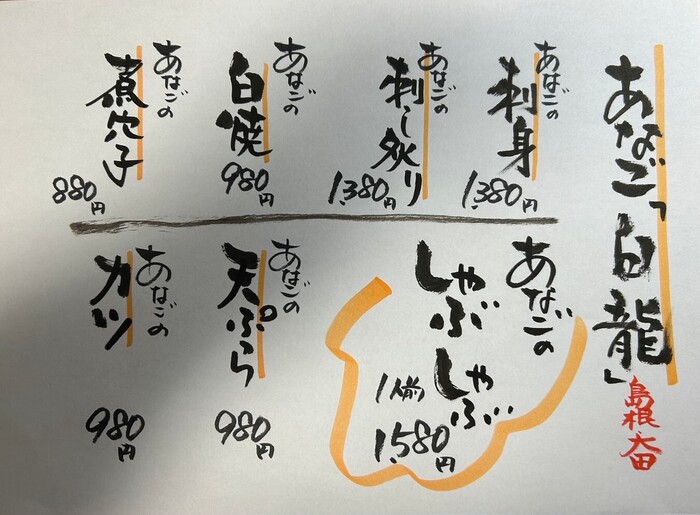 あなご「白龍」
島根・大田
あなごの
刺身
1,380円
あなごの
刺し炙り
1,380円
あなごの
白焼
980円
あなごの
煮穴子
880円
あなごの
しゃぶ
しゃぶ
1人前
1,580円
あなごの
天ぷら
980円
あなごの
カツ
980円